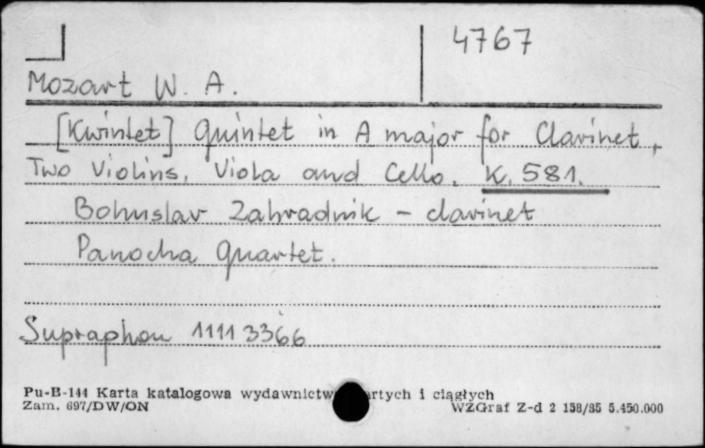 4767
Mozart W. A.
[Kwintet] Quintet in A major for Clarinet,
Two Violins, Viola and Cello. K. 581.
Bohuslav Zahradnik - clarinet
Panocha Quartet.
Supraphon 1111 3366
Pu-B-144 Karta katalogowa wydawnictw rtych i ciągłych
Zam. 697/DW/ON WZGraf Z-d 2 158/85 5.450.000